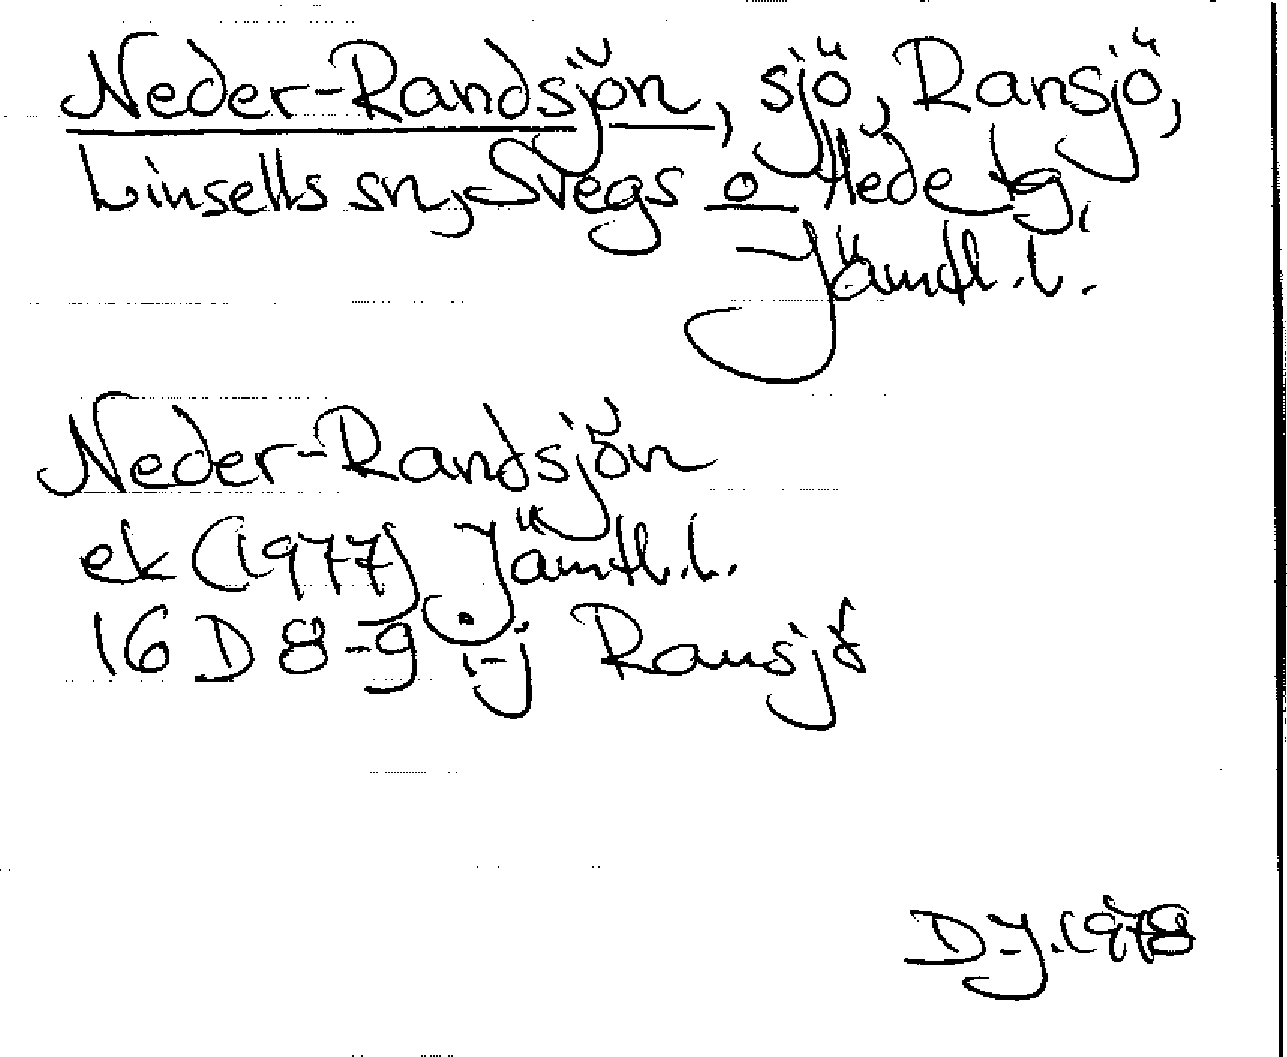 Neder-Randsjön, sjö, Ransjö,
Linsells sn, Svegs o Hede tg,
Jämtl. l.
Neder-Randsjön
ek (1977) Jämtl.l.
16 D 8-9 i-j Ransjö
DJ. 1978